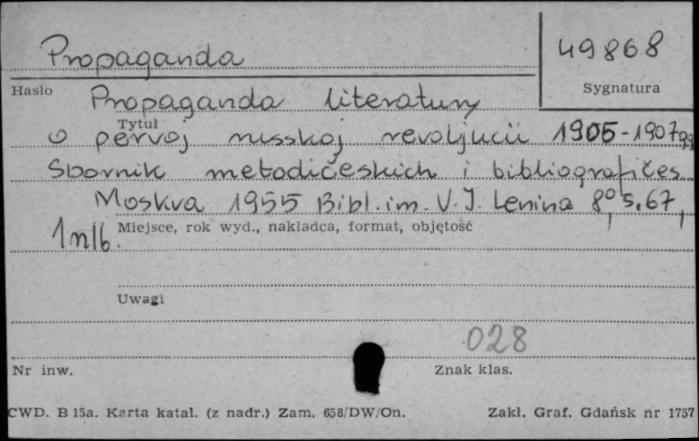 Propaganda
49868
Hasło
Sygnatura
Propaganda literatury
Tytuł
o pervoj russkoj revoljucii 1905-1907gg
Sbornik metodičeskich i bibliografičes
Moskva 1955 Bibl. im. V. I. Lenina 8°, s. 67,
1 nlb.
Miejsce, rok wyd., nakładca, format, objętość
Uwagi
028
Nr inw.
Znak klas.
CWD. B 15a. Karta katal. (z nadr.) Zam. 658/DW/On.
Zakł. Graf. Gdańsk nr 1757